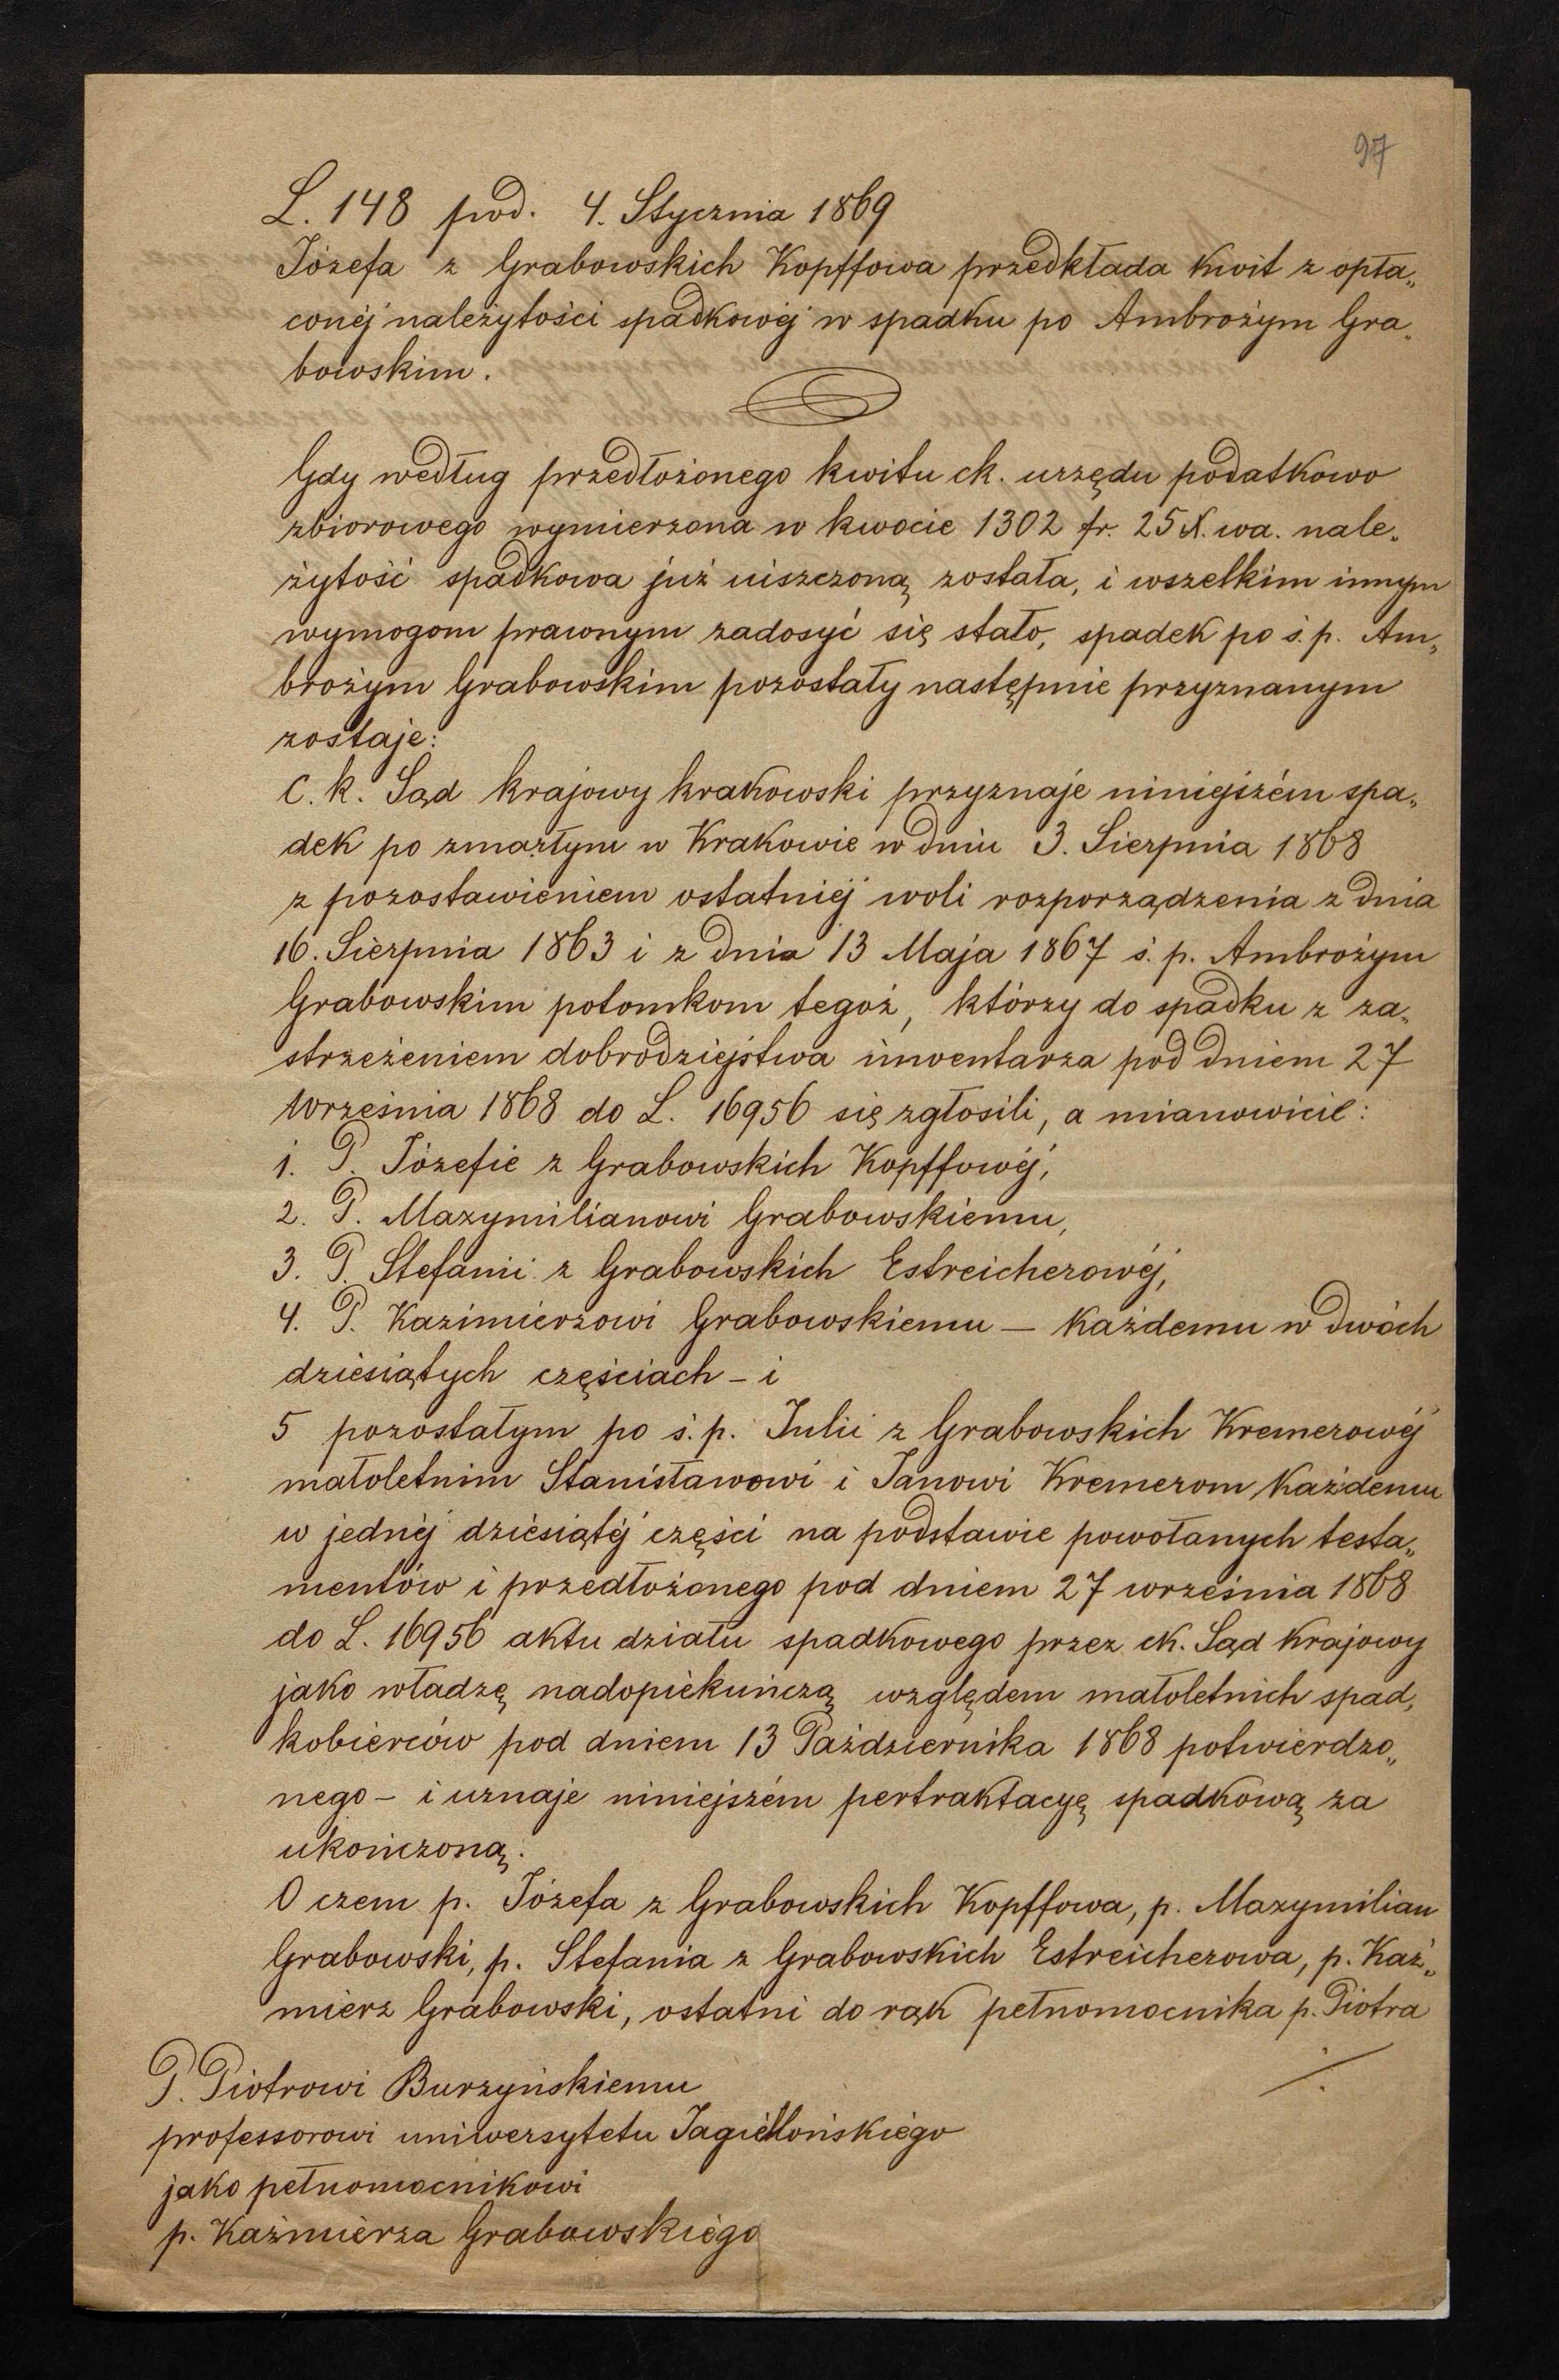 97
L. 148 pod. 4. Stycznia 1869
Józefa z Grabowskich Kopffowa przedkłada kwit z opła„
conéj należytości spadkowéj w spadku po Ambrożym Gra„
bowskim.
Gdy według przedłożonego kwitu ck. urzędu podatkowo
zbiorowego wymierzona w kwocie 1302 fr. 25 X. wa. nale„
żytość spadkowa już uiszczoną została, i wszelkim innym
wymogom prawnym zadosyć się stało, spadek po ś.p. Am„
brożym Grabowskim pozostały następnie przyznanym
zostaje:
C. k. Sąd krajowy krakowski przyznaje niniejszém spa„
dek po zmarłym w Krakowie w dniu 3. Sierpnia 1868
z pozostawieniem ostatniéj woli rozporządzenia z dnia
16. Sierpnia 1863 i z dnia 13 Maja 1867 ś. p. Ambrożym
Grabowskim potomkom tegoż, którzy do spadku z za„
strzeżeniem dobrodziejstwa inwentarza pod dniem 27
Września 1868 do L. 16956 się zgłosili, a mianowicie:
1. P. Józefie z Grabowskich Kopffowéj,
2. P. Maxymilianowi Grabowskiemu,
3. P. Stefanii z Grabowskich Estreicherowéj,
4. P. Kazimierzowi Grabowskiemu — każdemu w dwóch
dziesiątych częściach – i
5 pozostałym po ś.p. Julii z Grabowskich Kremerowéj
małoletnim Stanisławowi i Janowi Kremerom każdemu
w jednéj dziesiątéj części na podstawie powołanych testa„
mentów i przedłożonego pod dniem 27 września 1868
do L. 16956 aktu działu spadkowego przez ck. Sąd krajowy
jako władzę nadopiekuńczą względem małoletnich spad„
kobierców pod dniem 13 Października 1868 potwierdzo„
nego – i uznaje niniejszém pertraktacyę spadkową za
ukończoną.
O czem p. Józefa z Grabowskich Kopffowa, p. Maxymilian
Grabowski, p. Stefania z Grabowskich Estreicherowa, p. Kaź„
mierz Grabowski, ostatni do rąk pełnomocnika p. Piotra
./.
P. Piotrowi Burzyńskiemu
professorowi uniwersytetu Jagiellońskiego
jako pełnomocnikowi
p. Kaźmierza Grabowskiego